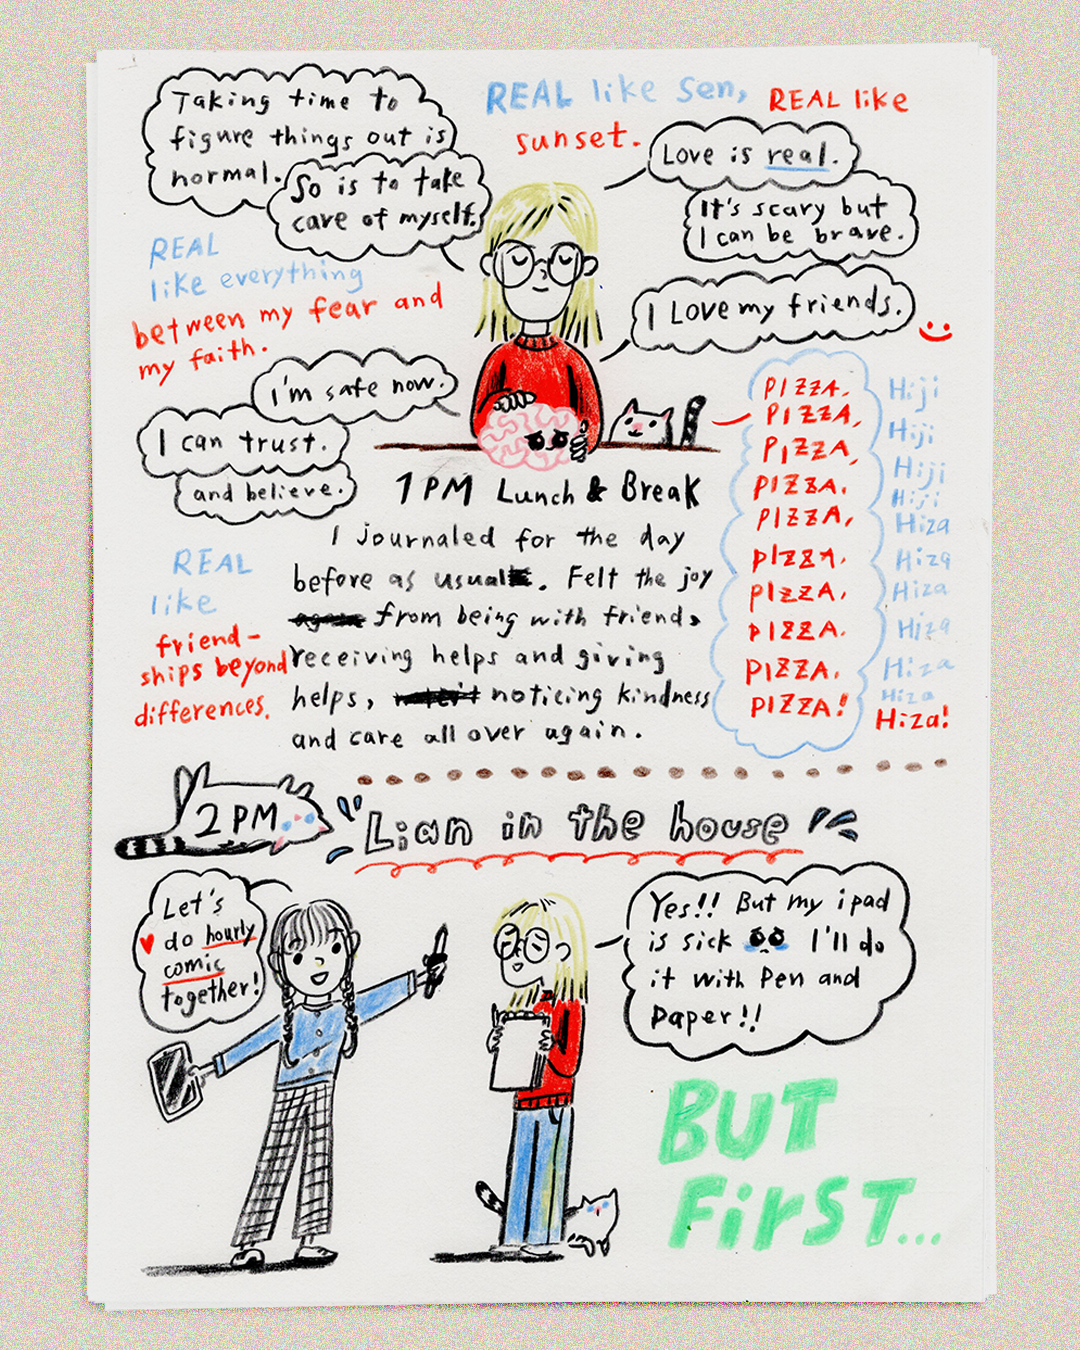 Taking time to
figure things out is
normal.
So is to take
care of myself.
REAL like Sen, REAL like
sunset.
Love is real.
It's scary but
I can be brave.
I Love my friends.
REAL
like everything
between my fear and
my faith.
I'm safe now.
I can trust.
and believe.
PIZZA.
PIZZA,
PIZZA,
PIZZA.
PIZZA,
PIZZA,
PIZZA.
PIZZA.
PIZZA.
PIZZA!
Hiji
Hiji
Hiji
Hiji
Hiza
Hiza
Hiza
Hiza
Hiza
Hiza
Hiza!
1 PM Lunch & Break
I journaled for the day
before as usual. Felt the joy
from being with friends
receiving helps and giving
helps, noticing kindness
and care all over again.
REAL
like
friend-
ships beyond
differences.
2 PM
Lian in the house
Let's
do hourly
comic
together!
Yes!! But my ipad
is sick I'll do
it with Pen and
Paper!!
BUT
FirST...